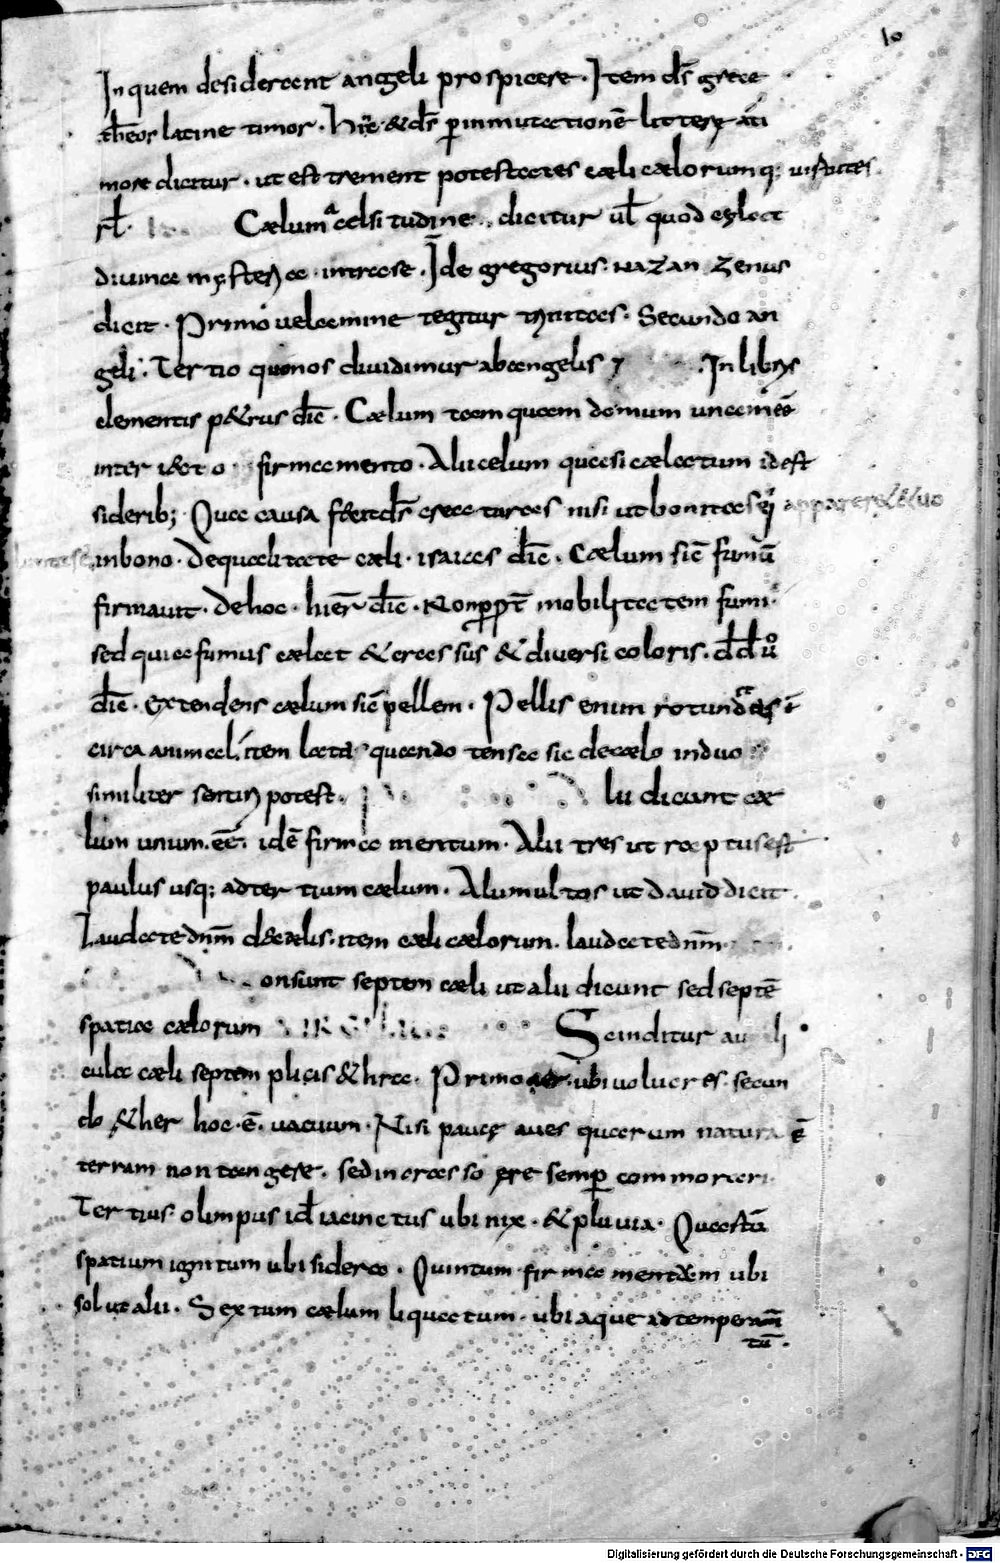 10
In quem desiderant angeli prospicere. Item d̄s grece
theos latine timor. Hīc & d̄s p̄ inmutationē litterę a ti
more dicitur. ut est trement potestates cæli cælorumq; uirtutes
rl̄. Cælum a celsitudine. dicitur ul̄ quod celat
diuina mysteria. intrase. Ide gregorius. nazanzenus
dicit. Primo uelamine tegitur trinitas. Secundo an
geli. Tertio quo nos diuidimur ab angelis In libris
clementis p&rus dic̄. Cælum tamquam domum unam
inter firmamento. Alii celum quasi cælatum id est
siderib; Que causa d̄s creaturas nisi ut bonitas ei appareret
in bono. De qualitate cæli. isaias dic̄. Cælum sic̄ fumū
firmauit. De hoc. hier̄ dic̄. Non p̄p̄t mobilitatem fumi.
sed quia fumus cælat & crassus & diuersi coloris. dd̄ ů
dic̄. extendens cælum sic̄ pellem. Pellis enim rotunda ē
circa animal. item lata quando tensa sic de cælo in duo
similiter sentiri potest. lii dicunt cæ
lum unum. ee. idē firmamentum. Alii tres ut raptus est
paulus usq; ad tertium cælum. Alii multos ut dauid dicit.
Laudate dnm̄ de cælis. item cæli cælorum. laudate dnm̄.
on sunt septem cæli ut alii dicunt sed septē
spatia cælorum Scinditur au li
cula cæli septem plicis & hrec. Primo aer. ubi uolucres. secun
do &her hoc. ē. uacuum. Nisi paucę aues quarum natura ē
terram non tangere. sed in crasso ere semp̄ commorari.
Tertius olimpus id̄ iacinctus ubi nix. & pluuia. Quartū
spatium ignitum ubi sidera. Quintum firmamentum ubi
sol ut alii. Sextum cælum liquatum. ubi aque ad temperam̄
tū.
Digitalisierung gefördert durch die Deutsche Forschungsgemeinschaft - DFG